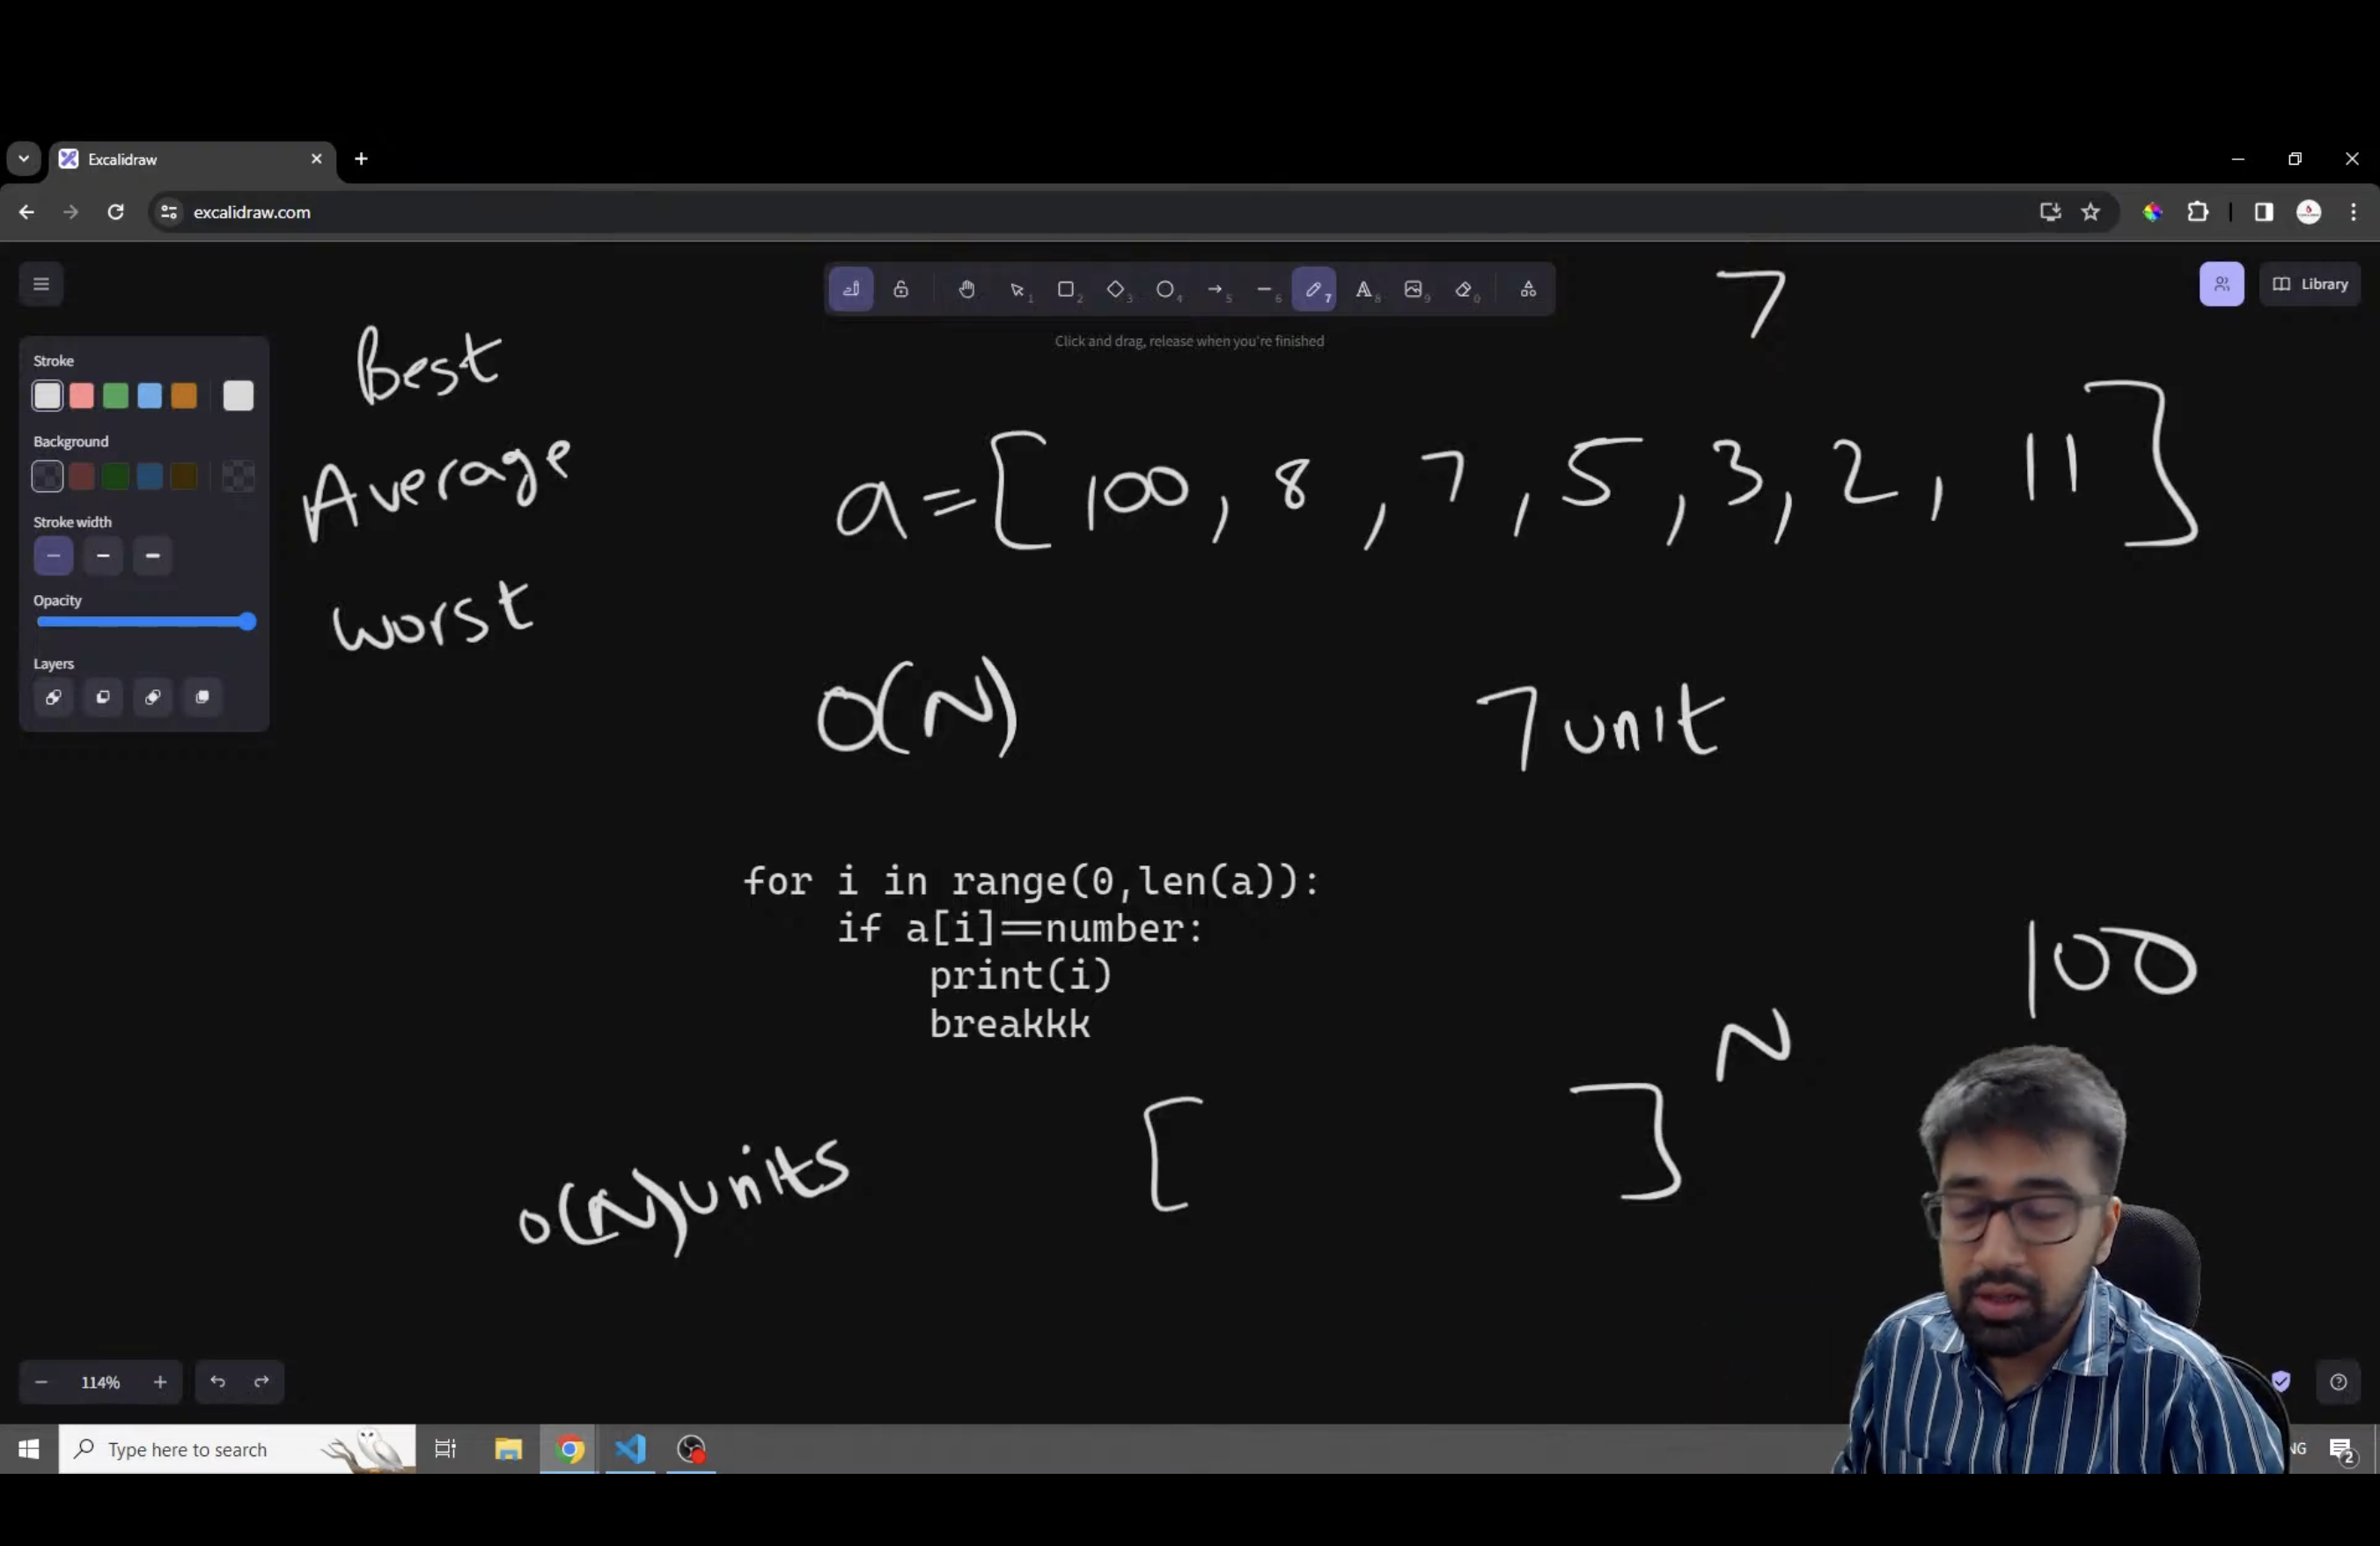 Excalidraw
excalidraw.com
Library
Click and drag, release when you're finished
1 2 3 4 5 6 7 8 9 0
7
Stroke
Background
Stroke width
Opacity
Layers
Best
Average
worst
a=[100, 8, 7, 5, 3, 2, 11]
O(N)
7 unit
for i in range(0,len(a)):
if a[i]==number:
print(i)
breakkk
100
N
[ ]
O(N)units
114%
Type here to search
NG
2